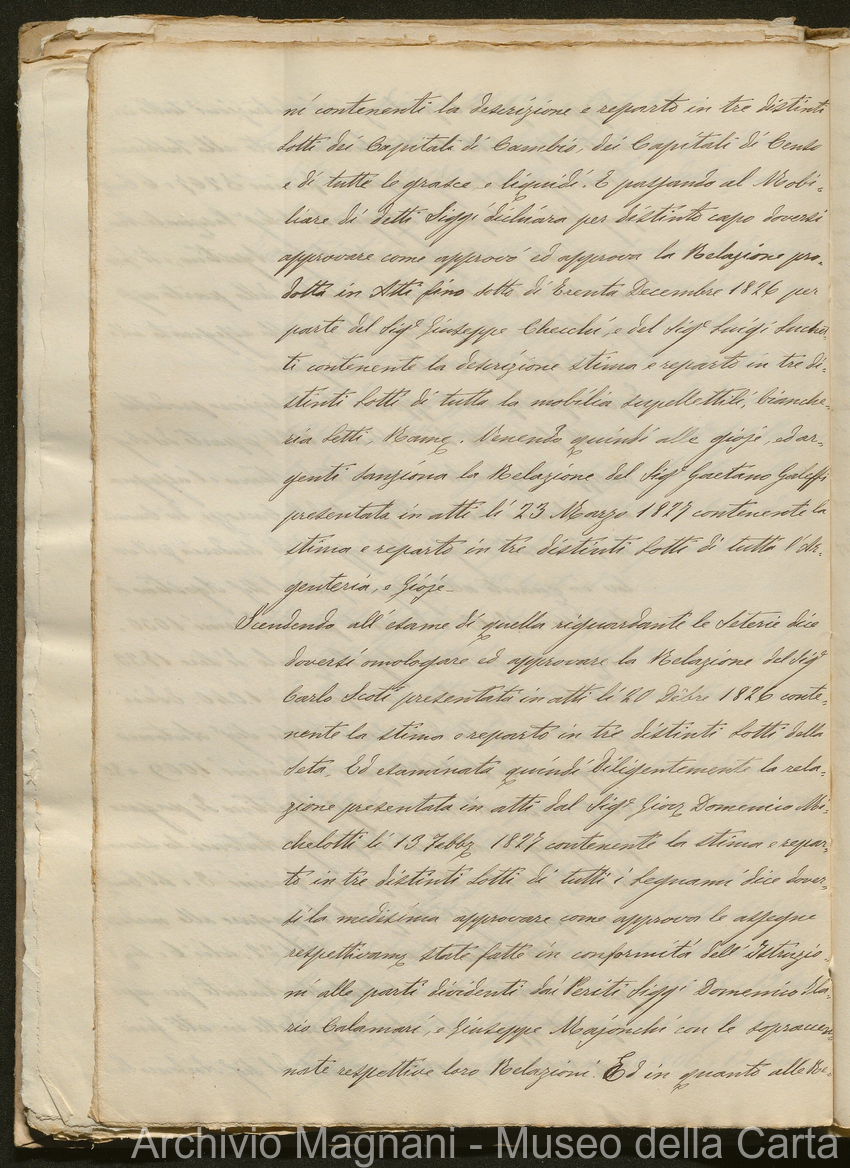 ni contenenti la descrizione e reparto in tre distinti
Lotti dei Capitali di Cambio, dei Capitali di Censo
e di tutte le grasce, e liquidi. E passando al Mobi-
liare di detti Siggi dichiara per distinto capo doversi
approvare come approvò ed approva la Relazione pro-
dotta in Atti fino sotto di Trenta Decembre 1826 per
parte del Sigr Giuseppe Checchi, e del Sigr Luigi
ti contenente la descrizione stima e reparto in tre di-
stinti Lotti di tutta la mobilia supellettili, bianche-
ria Letti, Rame. Venendo quindi alle gioje, ed ar-
genti sanziona la Relazione del Sigr Gaetano Galeffi
presentata in atti li 23 Marzo 1827 contenente la
stima e reparto in tre distinti Lotti di tutta l'Ar-
genteria, e Gioje.
Scendendo all'esame di quella riguardante le Seterie dice
doversi omologare ed approvare la Relazione del Sigr
Carlo Scoti presentata in atti li 20 Dibre 1826 conte-
nente la stima e reparto in tre distinti Lotti della
Seta, Ed esaminata quindi diligentemente la rela-
zione presentata in atti dal Sigr Domenico Mi-
chelotti li 13 Febb 1827 contenente la stima e repar-
to in tre distinti Lotti di tutti i Legnami dice dover-
si la medesima approvare come approva le assegne
respettivam state fatte in conformità dell'Istruzio-
ni alle parti dividenti dai Periti Siggi Domenico Ila-
rio Calamari, e Giuseppe Majonchi con le sopracen-
nate respettive loro Relazioni. Ed in quanto alle Re-
Archivio Magnani - Museo della Carta